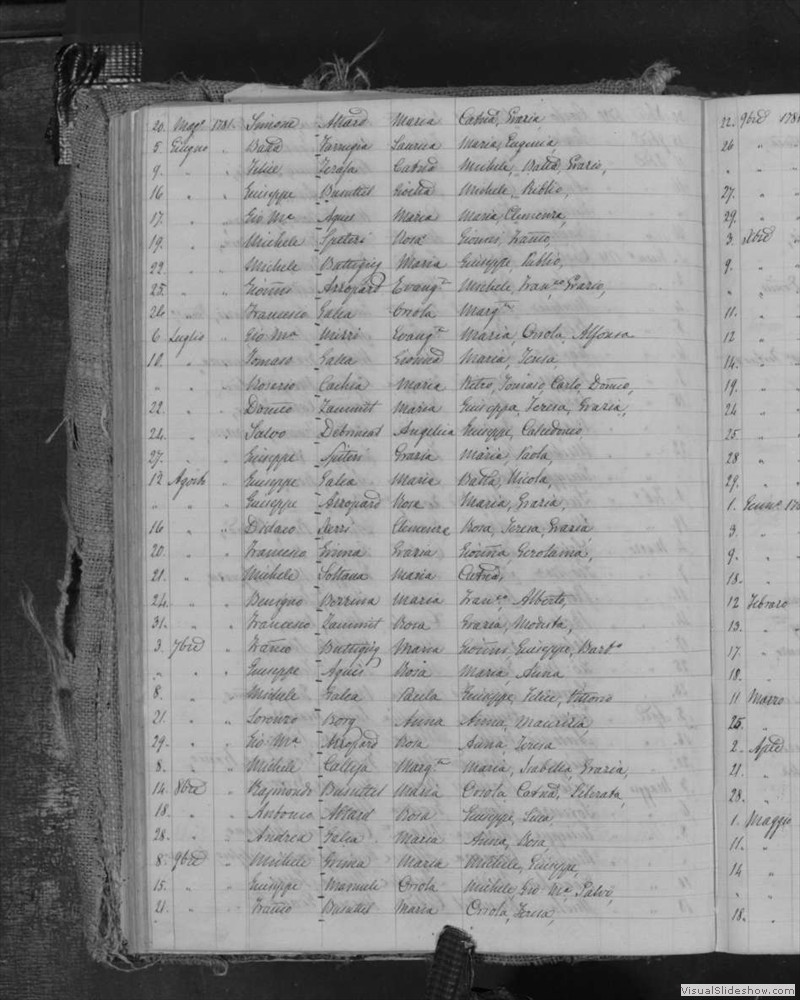 20. Magg.o 1781. Simone Attard Maria Catn̄a, Grazia,
5. Giugno " Batta Farrugia Laurica Maria, Eugenia,
9. " " Felice Catn̄a Michele, Batta, Grazio,
16 " " Giuseppe Busuttil Michele, Publio,
17. " " Gio Ma Agius Maria Maria, Clemenza,
19. " " Michele Spiteri Rosa Gionni, Franco,
22. " " Michele Buttigieg Maria Giuseppe, Publio,
25. " " Gionni Azzopard Evang.a Michele, Fran.co Grazio,
26 " " Francesco Galea Orsola Marg.ta
6 Luglio " Gio Ma Mizzi Evang.a Maria, Orsola, Alfonsa
10. " " Tomaso Galea Gionna Maria, Teresa,
" " " Rosario Cachia Maria Pietro, Tomaso, Carlo, Domco,
22. " " Domco Zammit Maria Giuseppa, Teresa, Grazia,
24. " " Salvo Debrincat Angelica Giuseppe, Calcedonio,
27. " " Giuseppe Spiteri Grazia Maria, Paola,
12 Agosto " Giuseppe Galea Maria Batta, Nicola,
" " " Giuseppe Azzopard Rosa Maria, Grazia,
16 " " Didaco Clemenza Rosa, Teresa, Grazia
20. " " Francesco Grima Grazia Gionna, Gerolama,
21. " " Michele Soltana Maria Catn̄a,
24. " " Benigno Maria Fran.co, Alberto,
31. " " Francesco Zammit Rosa Grazia, Modesta,
3. 7bre " Franco Buttigieg Maria Gionni Giuseppe, Barb.a
" " " Giuseppe Agius Rosa Maria, Anna
8. " " Michele Galea Paola Giuseppe, Felice, Vittorio
21. " " Lorenzo Borg Anna Anna, Maurizia,
29. " " Gio Ma Azzopard Rosa Anna, Teresa
8. " " Michele Calleja Marg.ta Maria, Isabella, Grazia,
14. 8bre " Rajmondo Busuttil Maria Orsola, Catn̄a, Liberata,
18. " " Antonio Attard Rosa Giuseppe, Luca,
28. " " Andrea Galea Maria Anna, Rosa,
8. 9bre " Michele Grima Maria Michele, Giuseppe,
15. " " Giuseppe Mamuli Orsola Michele, Gio Ma, Salvo,
21. " " Franco Busuttil Maria Orsola, Teresa,
22. 9bre 1781
26 "
" "
27. "
29. "
3. Xbre
9. "
" "
11. "
12 "
14. "
19. "
24 "
25. "
28 "
29. "
1. Genn.o
3. "
9. "
18. "
12 Febraro
13. "
17. "
18. "
11 Marzo
25. "
2. Aple
21. "
28. "
1. Maggio
11. "
14 "
" "
18. "
VisualSlideshow.com